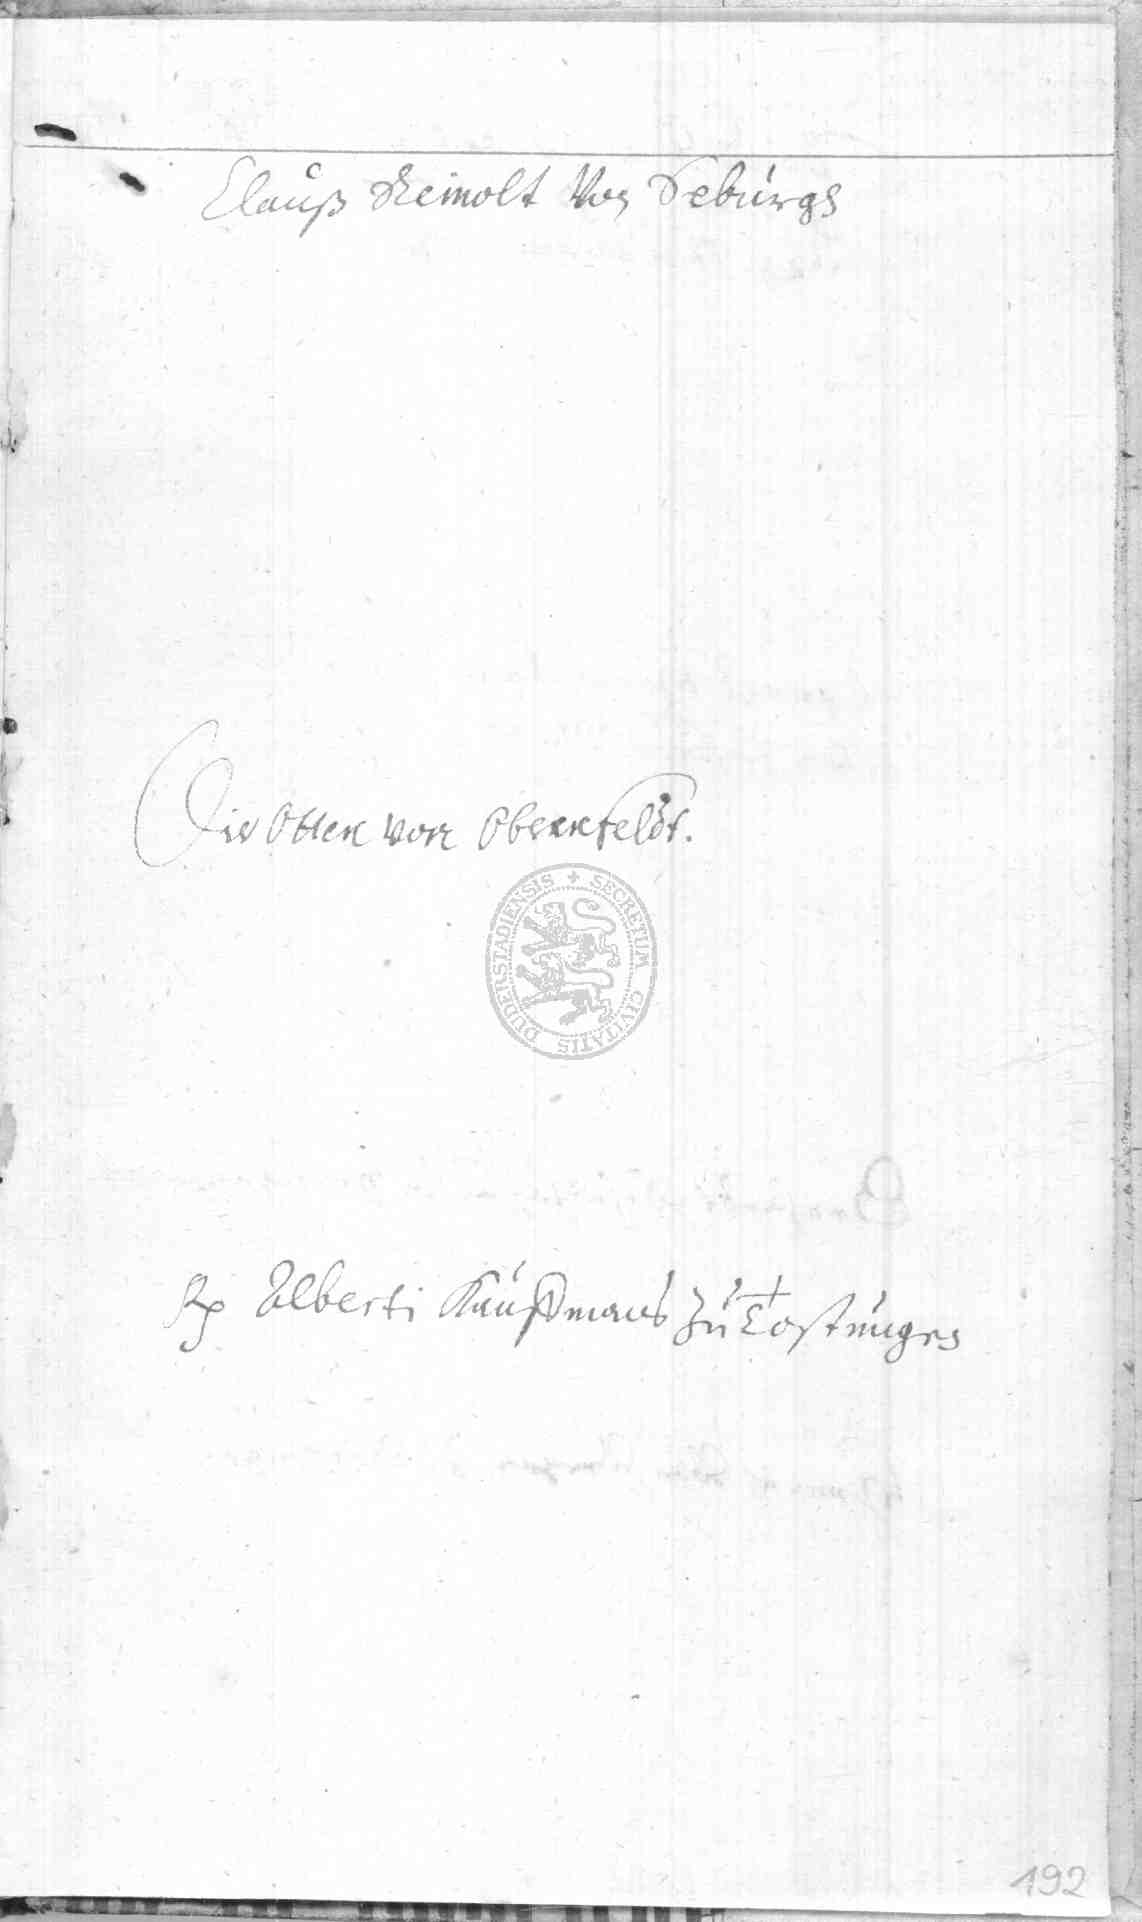 Clauß Reinolt von Seburgk
Die Otten von Obernfeldt.
SECRETUM CIVITATIS DUDERSTADIENSIS
Alberti Kauffmans zu Tastungen
192